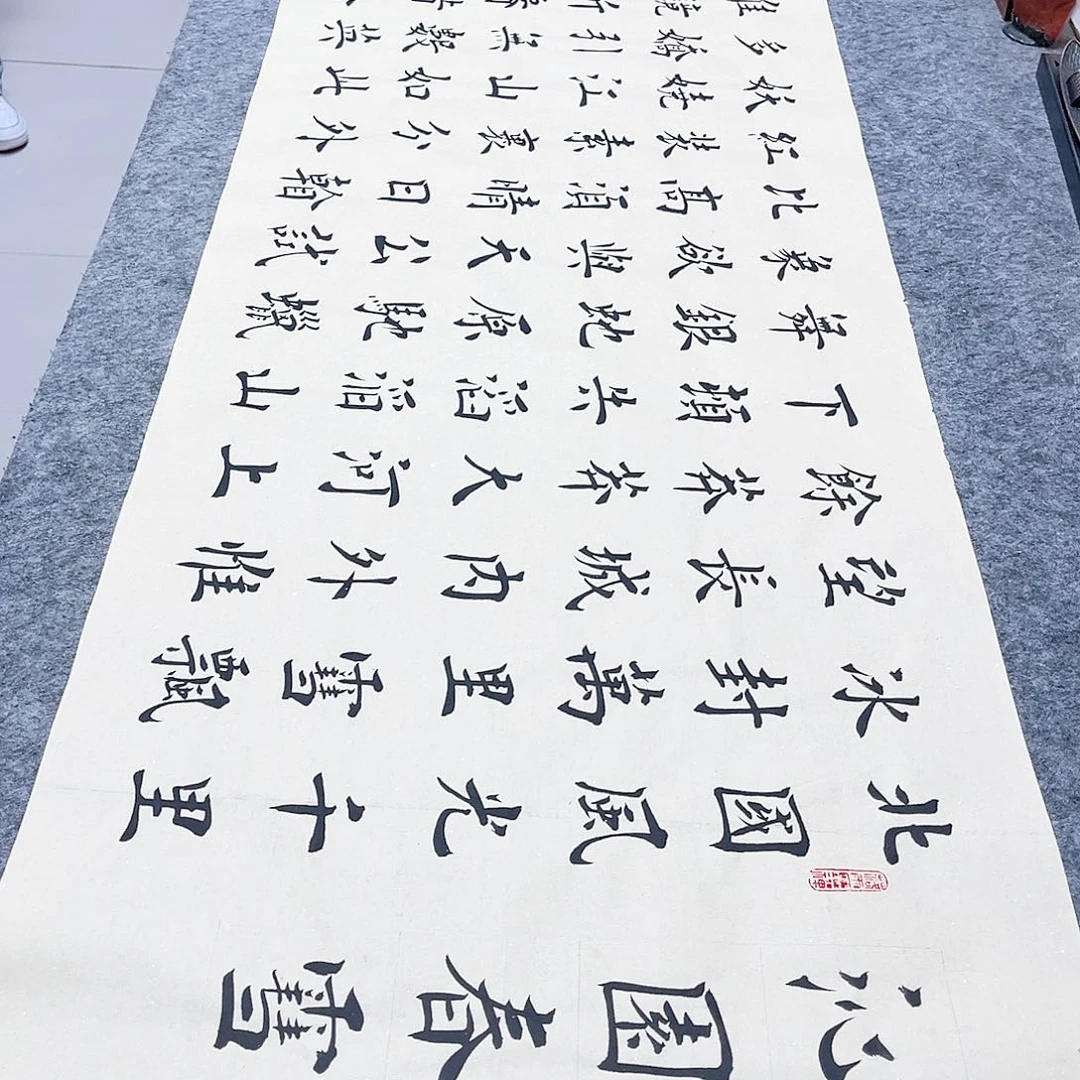 沁園春雪
北國風光千里
冰封萬里雪飄
望長城内外惟
餘莽莽大河上
下頓失滔滔山
舞銀蛇原馳蠟
象欲與天公試
比高須晴日
紅裝素裹分外
妖嬈江山如此
多嬌引無數英